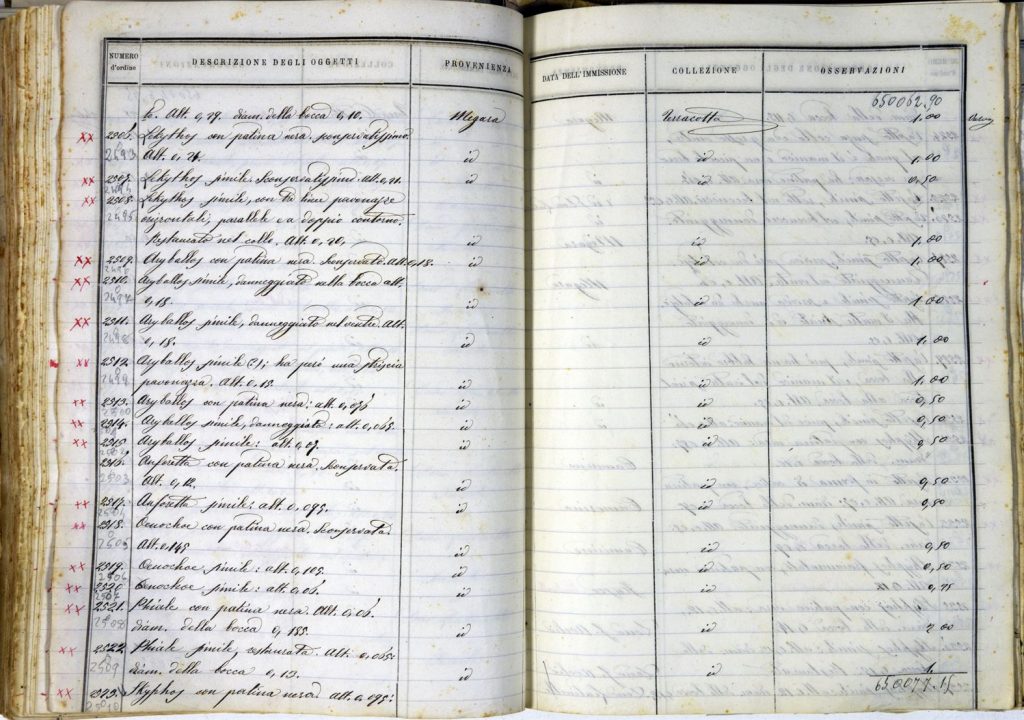 NUMERO d'ordine DESCRIZIONE DEGLI OGGETTI PROVENIENZA DATA DELL'IMMISSIONE COLLEZIONE OSSERVAZIONI
650062.90
Alt. 0,79. diam. della bocca 0,10. Megara Terracotta 1.00
2506. Lekythos con patina nera. sconservatissimo.
2493 Alt. 0,21. id id 1.00
2507. Lekythos simile. Sconservatissimo. Alt. 0,21. id id 0,50
2494
2508. Lekythos simile, con tre linee pavonazze
2495 orizzontali, parallele e a doppio contorno.
Restaurato nel collo. Alt. 0,20. id id 1.00
2509. Aryballos con patina nera. Sconservato. Alt. 0,18. id id 1.00
2496
2510. Aryballos simile, danneggiato nella bocca alt.
2497 0,18. id id 1.00
2511. Aryballos simile, danneggiato nel ventre. Alt.
2498 0,18. id id 1.00
2512. Aryballos simile (?); ha però una striscia
2499 pavonazza. Alt. 0,18. id id 1.00
2513. Aryballos con patina nera: alt. 0,075 id id 0,50
2500
2514. Aryballos simile, danneggiato: alt. 0,065. id id 0,50
2515. Aryballos simile: alt. 0,07. id id 0,50
2502
2516. Anforetta con patina nera. Sconservata.
2503 Alt. 0,12. id id 0,50
2517. Anforetta simile: alt. 0,095. id id 0,50
2504
2518. Oenochoe con patina nera. Sconservata.
2505 Alt. 0,145 id id 0,50
2519. Oenochoe simile: alt. 0,105. id id 0,50
2506
2520 Oenochoe simile: alt. 0,06. id id 0,75
2507
2521. Phiale con patina nera. Alt. 0,06.
2508 diam. della bocca 0,155. id id 2.00
2522. Phiale simile restaurata. Alt. 0,065.
2509 diam. della bocca 0,13. id id 1.
2523. Skyphos con patina nera. alt. 0,095.
2510 650077.15